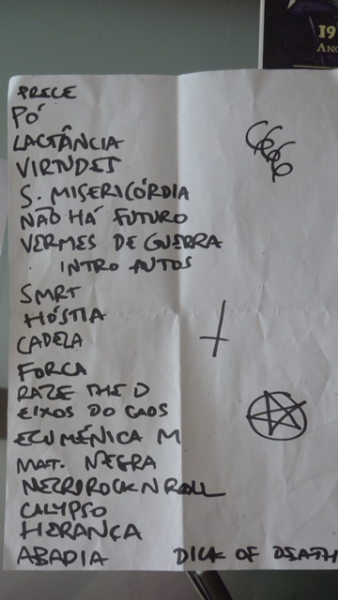 19
ANO
PRECE
PÓ
LACTÂNCIA
VIRTUDES
S. MISERICÓRDIA
NÃO HÁ FUTURO
VERMES DE GUERRA
. INTRO AUTOS
SMRT
HÓSTIA
CADELA
FORCA
RAZE THE D
EIXOS DO CAOS
ECUMÉNICA M
MAT. NEGRA
NECROROCKN ROLL
CALYPSO
HERANÇA
ABADIA DICK OF DEATH
666